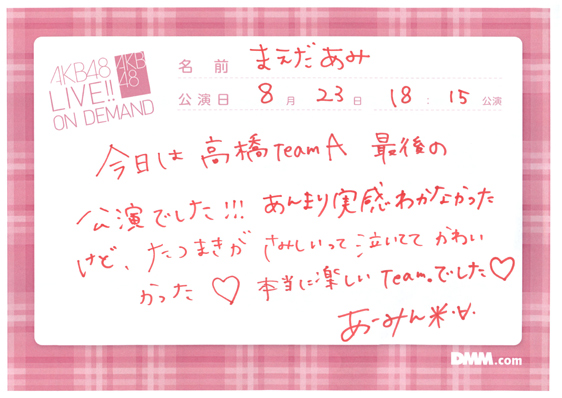 AKB48
LIVE!!
ON DEMAND
AKB
48
名前 まえだあみ
公演日 8月23日 18:15公演
今日は 高橋TeamA 最後の
公演でした!!! あんまり実感わかなかった
けど、たつまきが さみしいって泣いてて かわい
かった♡ 本当に楽しいTeam。でした♡
あーみん米・∀・
DMM.com